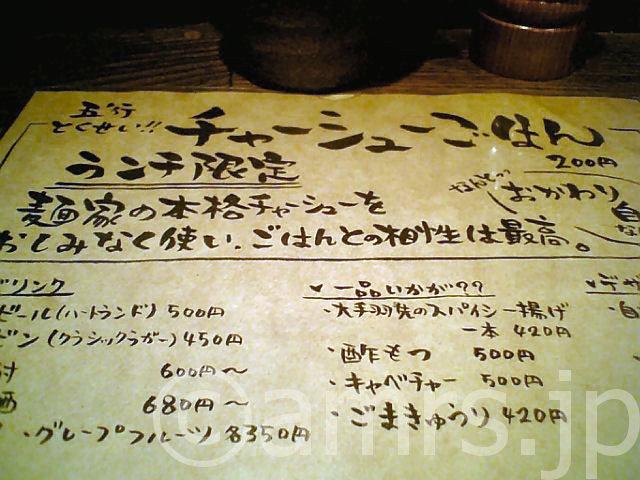 五行
とくせい!!
チャーシューごはん
200円
ランチ限定
なんと
おかわり
自
麺家の本格チャーシューを
おしみなく使い、ごはんとの相性は最高。
ドリンク
ドール(ハートランド) 500円
ビン(クラシックラガー) 450円
600円〜
酒 680円〜
・グレープフルーツ 各350円
✓一品いかが??
・大手羽先のスパイシー揚げ
一本 420円
・酢もつ 500円
・キャベチャー 500円
・ごまきゅうり 420円
✓デザ
・自
©amrs.jp